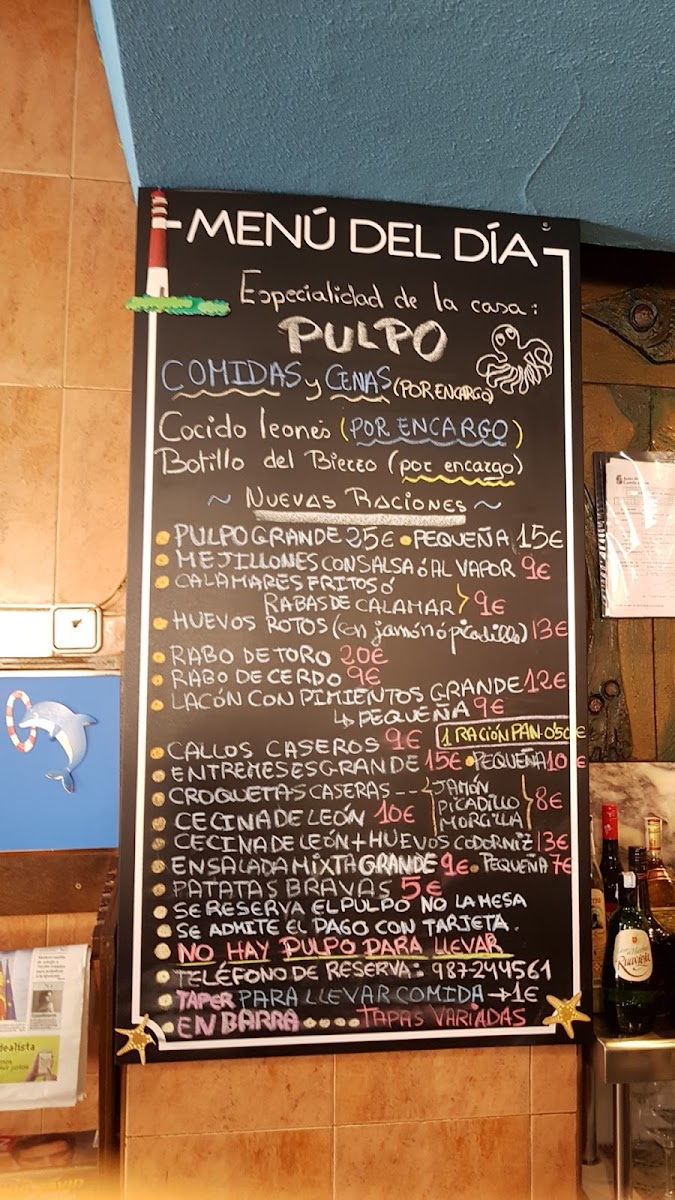 MENÚ DEL DÍA
Especialidad de la casa:
PULPO
COMIDAS y CENAS (POR ENCARGO)
Cocido leonés (POR ENCARGO)
Botillo del Bierzo (por encargo)
~ NUEVAS RACIONES ~
PULPO GRANDE 25€ • PEQUEÑA 15€
MEJILLONES CON SALSA ó AL VAPOR 9€
CALAMARES FRITOS ó
RABAS DE CALAMAR 9€
HUEVOS ROTOS (con jamón ó picadillo) 13€
RABO DE TORO 20€
RABO DE CERDO 9€
LACÓN CON PIMIENTOS GRANDE 12€
↳ PEQUEÑA 9€
1 RACIÓN PAN 0'50€
CALLOS CASEROS 9€
ENTREMESES GRANDE 15€ • PEQUEÑA 10€
CROQUETAS CASERAS -- JAMÓN
PICADILLO 8€
MORCILLA
CECINA DE LEÓN 10€
CECINA DE LEÓN + HUEVOS CODORNIZ 13€
ENSALADA MIXTA GRANDE 9€ • PEQUEÑA 7€
PATATAS BRAVAS 5€
SE RESERVA EL PULPO NO LA MESA
SE ADMITE EL PAGO CON TARJETA.
NO HAY PULPO PARA LLEVAR
TELÉFONO DE RESERVA: 987-244561
TAPER PARA LLEVAR COMIDA → 1€
EN BARRA .... TAPAS VARIADAS
Ruavieja
dealista